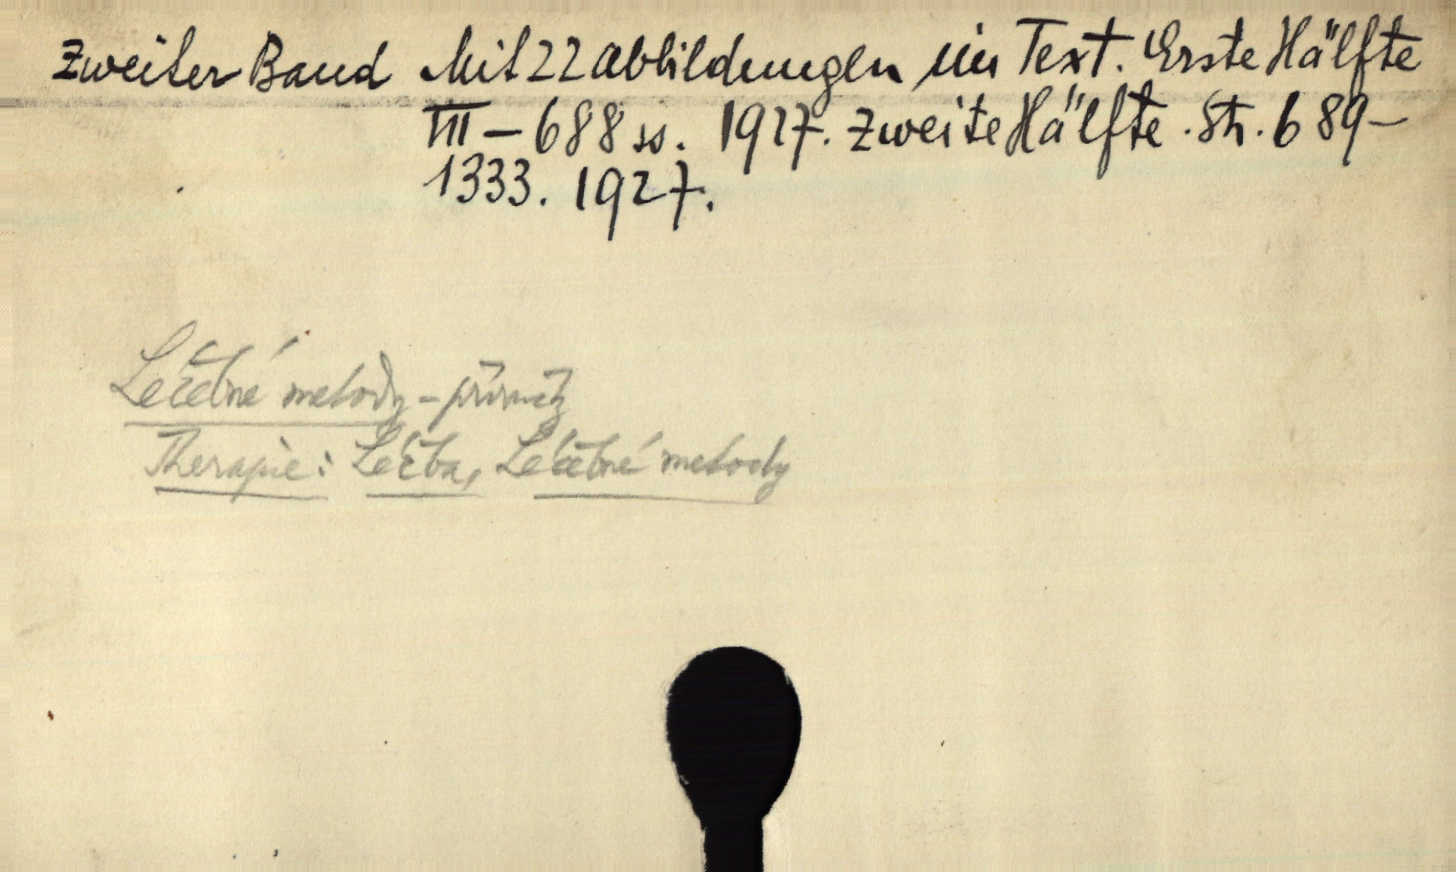 Zweiter Band Mit 22 abbildungen im Text. Erste Hälfte
VIII – 688 ss. 1927. Zweite Hälfte. Str. 689–
1333. 1927.
Léčebné metody – příručky
Therapie: Léčba, Léčebné metody